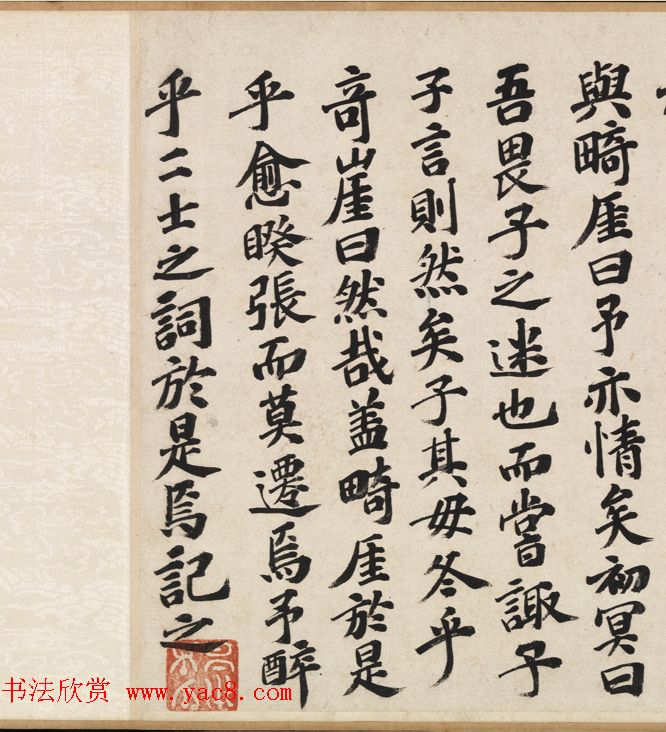 與畸厓曰予亦情矣初冥曰
吾畏子之迷也而嘗諏子
子言則然矣子其毋冬乎
奇崖曰然哉盖畸厓於是
乎愈睽張而莫遷焉予醉
乎二士之詞於是焉記之
书法欣赏 www.yac8.com